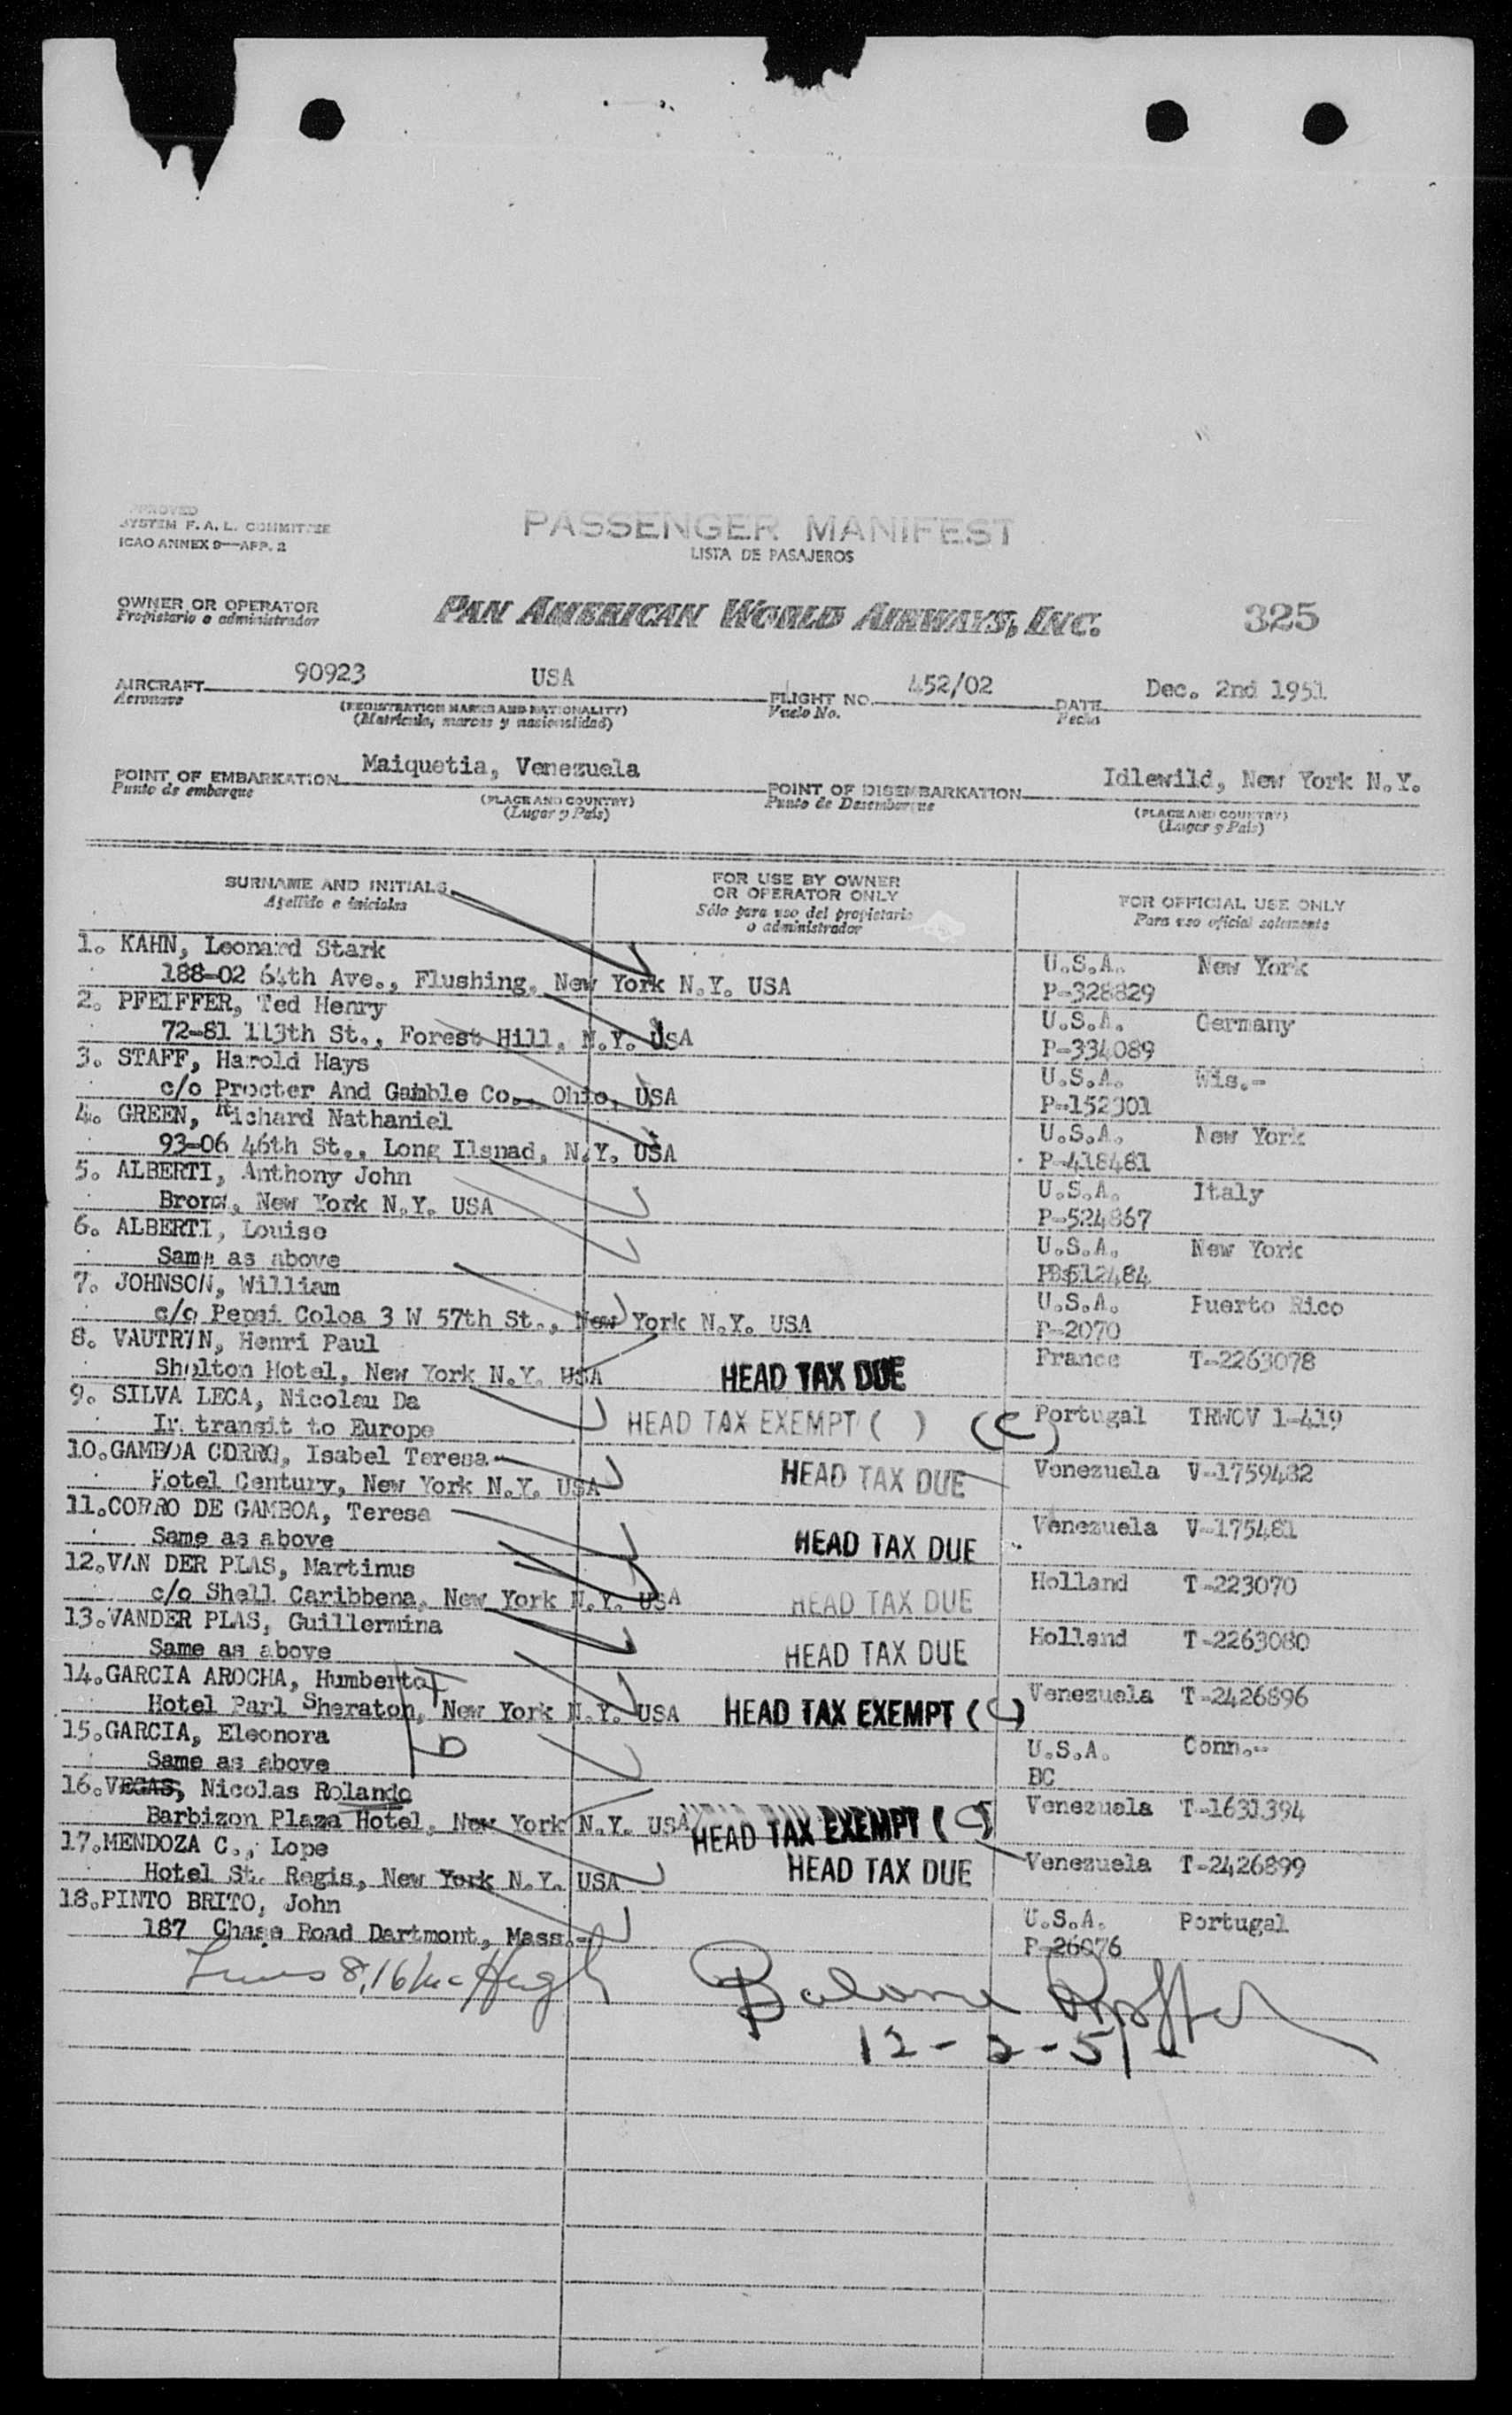 APPROVED
SYSTEM F. A. L. COMMITTEE
ICAO ANNEX 9—APP. 2
PASSENGER MANIFEST
LISTA DE PASAJEROS
OWNER OR OPERATOR
Propietario o administrador
PAN AMERICAN WORLD AIRWAYS, INC.
325
AIRCRAFT 90923 USA FLIGHT NO. 452/02 DATE Dec. 2nd 1951
Aeronave (REGISTRATION MARKS AND NATIONALITY) Vuelo No. Fecha
(Matrícula, marcas y nacionalidad)
POINT OF EMBARKATION Maiquetia, Venezuela POINT OF DISEMBARKATION Idlewild, New York N.Y.
Punto de embarque (PLACE AND COUNTRY) Punto de Desembarque (PLACE AND COUNTRY)
(Lugar y País) (Lugar y País)
SURNAME AND INITIALS FOR USE BY OWNER OR OPERATOR ONLY FOR OFFICIAL USE ONLY
Apellido e iniciales Sólo para uso del propietario o administrador Para uso oficial solamente
1. KAHN, Leonard Stark U.S.A. New York
188-02 64th Ave., Flushing, New York N.Y. USA P-328829
2. PFEIFFER, Ted Henry U.S.A. Germany
72-81 113th St., Forest Hill, N.Y. USA P-334089
3. STAFF, Harold Hays U.S.A. Wis.-
c/o Procter And Gamble Co., Ohio, USA P-152301
4. GREEN, Richard Nathaniel U.S.A. New York
93-06 46th St., Long Ilsnad, N.Y. USA P-418481
5. ALBERTI, Anthony John U.S.A. Italy
Bronx, New York N.Y. USA P-524867
6. ALBERTI, Louise U.S.A. New York
Same as above 512484
7. JOHNSON, William U.S.A. Puerto Rico
c/o Pepsi Coloa 3 W 57th St., New York N.Y. USA P-2070
8. VAUTRIN, Henri Paul France T-2263078
Shelton Hotel, New York N.Y. USA HEAD TAX DUE
9. SILVA LECA, Nicolau Da Portugal TRWOV 1-419
In transit to Europe HEAD TAX EXEMPT ( ) (C)
10.GAMBOA CORRO, Isabel Teresa Venezuela V-1759482
Hotel Century, New York N.Y. USA HEAD TAX DUE
11.CORRO DE GAMBOA, Teresa Venezuela V-175481
Same as above HEAD TAX DUE
12.VAN DER PLAS, Martinus Holland T-223070
c/o Shell Caribbena, New York N.Y. USA HEAD TAX DUE
13.VANDER PLAS, Guillermina Holland T-2263080
Same as above HEAD TAX DUE
14.GARCIA AROCHA, Humberto Venezuela T-2426896
Hotel Parl Sheraton, New York N.Y. USA HEAD TAX EXEMPT (C)
15.GARCIA, Eleonora U.S.A. Conn.-
Same as above BC
16.VEGAS, Nicolas Rolando Venezuela T-1631394
Barbizon Plaza Hotel, New York N.Y. USA HEAD TAX EXEMPT (C)
17.MENDOZA C., Lope Venezuela T-2426899
Hotel St. Regis, New York N.Y. USA HEAD TAX DUE
18.PINTO BRITO, John U.S.A. Portugal
187 Chase Road Dartmont, Mass.- P-26076
8,16 McHugh
12-2-51